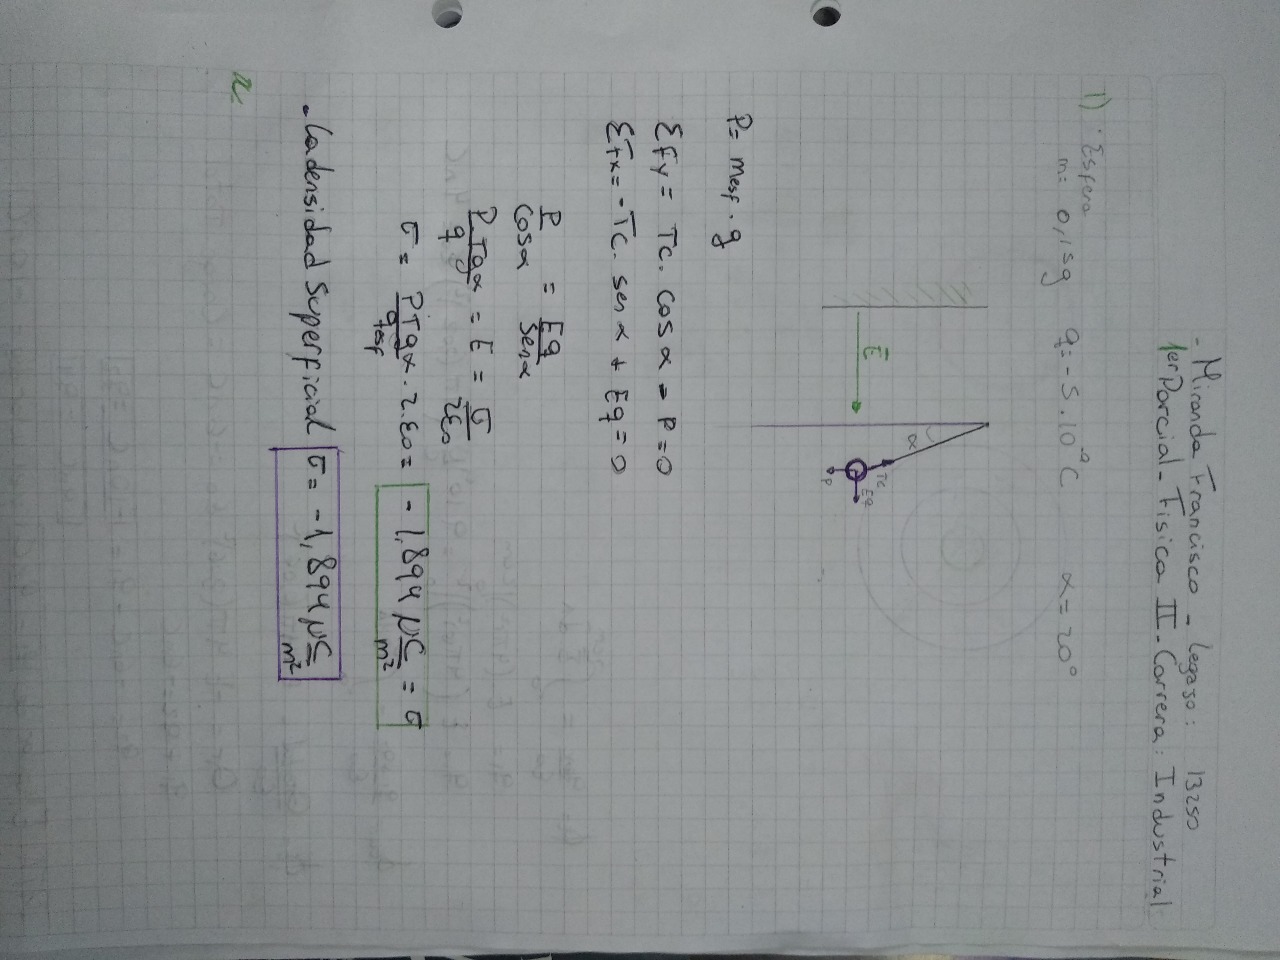 - Miranda, Francisco - Legajo: 13250
1er Parcial - Fisica II - Carrera: Industrial
1) · Esfera
m= 0,15g q= -5.10⁻⁹C α= 20°
E
α
Tc
Eq
P
P= mesf . g
ΣFy= Tc. cos α - P=0
ΣFx= -Tc. sen α + Eq=0
P/cosα = Eq/senα
P.Tgα/q = E = σ/2ε₀
σ = PTgα/qesf . 2.ε₀= -1,894 µC/m² = σ
- La densidad Superficial σ= -1,894 µC/m²